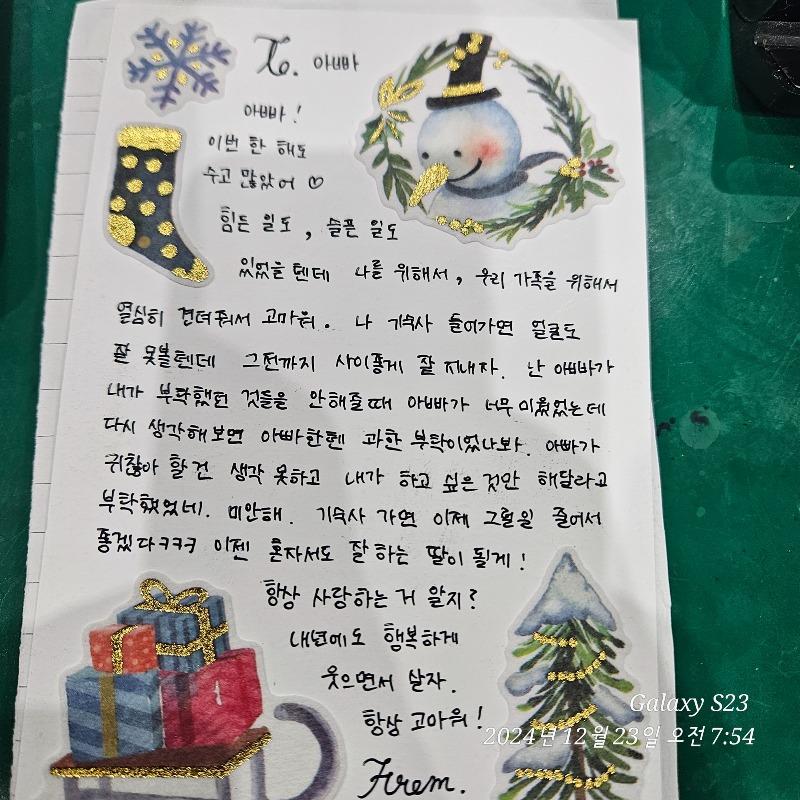 To. 아빠
아빠!
이번 한 해도
수고 많았어 ♡
힘든 일도, 슬픈 일도
있었을텐데 나를 위해서, 우리 가족을 위해서
열심히 견뎌줘서 고마워. 나 기숙사 들어가면 얼굴도
잘 못볼텐데 그전까지 사이좋게 잘 지내자. 난 아빠가
내가 부탁했던 것들을 안해줄때 아빠가 너무 미웠었는데
다시 생각해보면 아빠한텐 과한 부탁이었나봐. 아빠가
귀찮아 할 건 생각 못하고 내가 하고 싶은 것만 해달라고
부탁했었네. 미안해. 기숙사 가면 이제 그럴일 줄어서
좋겠다ㅋㅋㅋ 이젠 혼자서도 잘 하는 딸이 될게!
항상 사랑하는 거 알지?
내년에도 행복하게
웃으면서 살자.
항상 고마워!
From.
Galaxy S23
2024년 12월 23일 오전 7:54